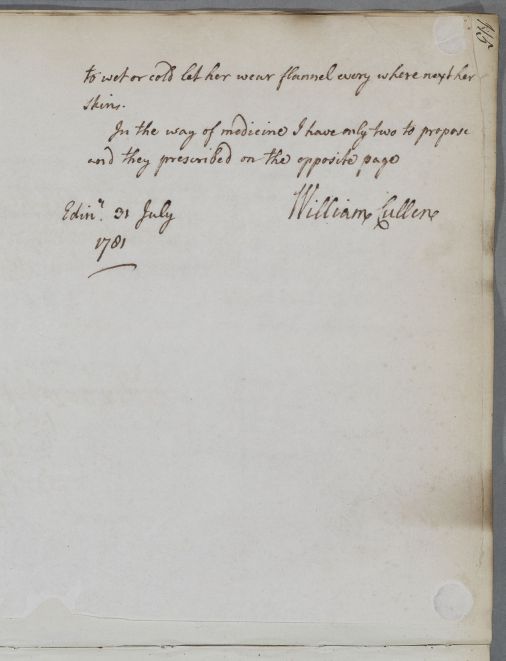 to wet or cold let her wear flannel every where next her
skin.
In the way of medicine I have only two to propose
and they prescribed on the opposite page
William Cullen
Edinr. 31 July
1781